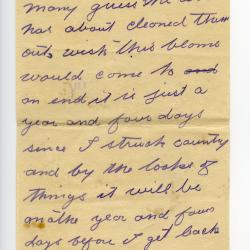 many guess the
has about cleoned them
out wish this blome
would come to and
an end it is just a
year and four days
since I struck country
and by the looks of
things it will be
nothe year and four
days before I get back